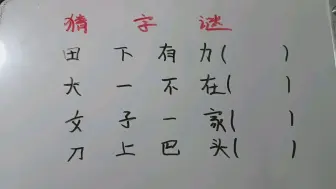 猜字谜
田下有力( )
大一不在( )
文子一家( )
刀上巴头( )